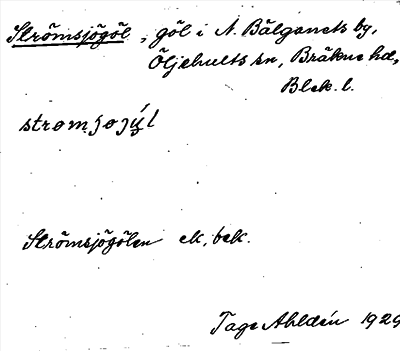 Strömsjögöl, göl i N. Bälganets by,
Öljehults sn, Bräkne hd,
Blek. l.
strømʃøjýl
Strömsjögölen ek, bek.
Tage Ahldén 1929